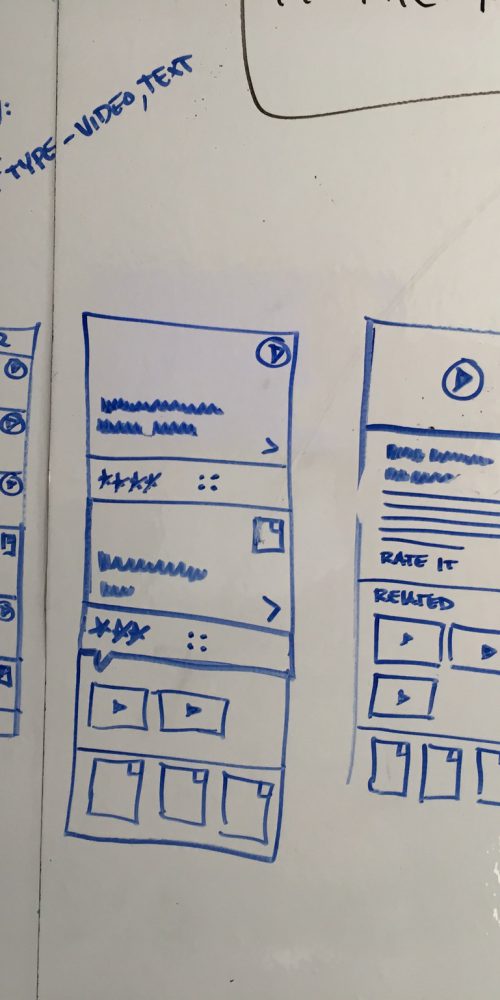 TYPE - VIDEO, TEXT
****
***
RATE IT
RELATED